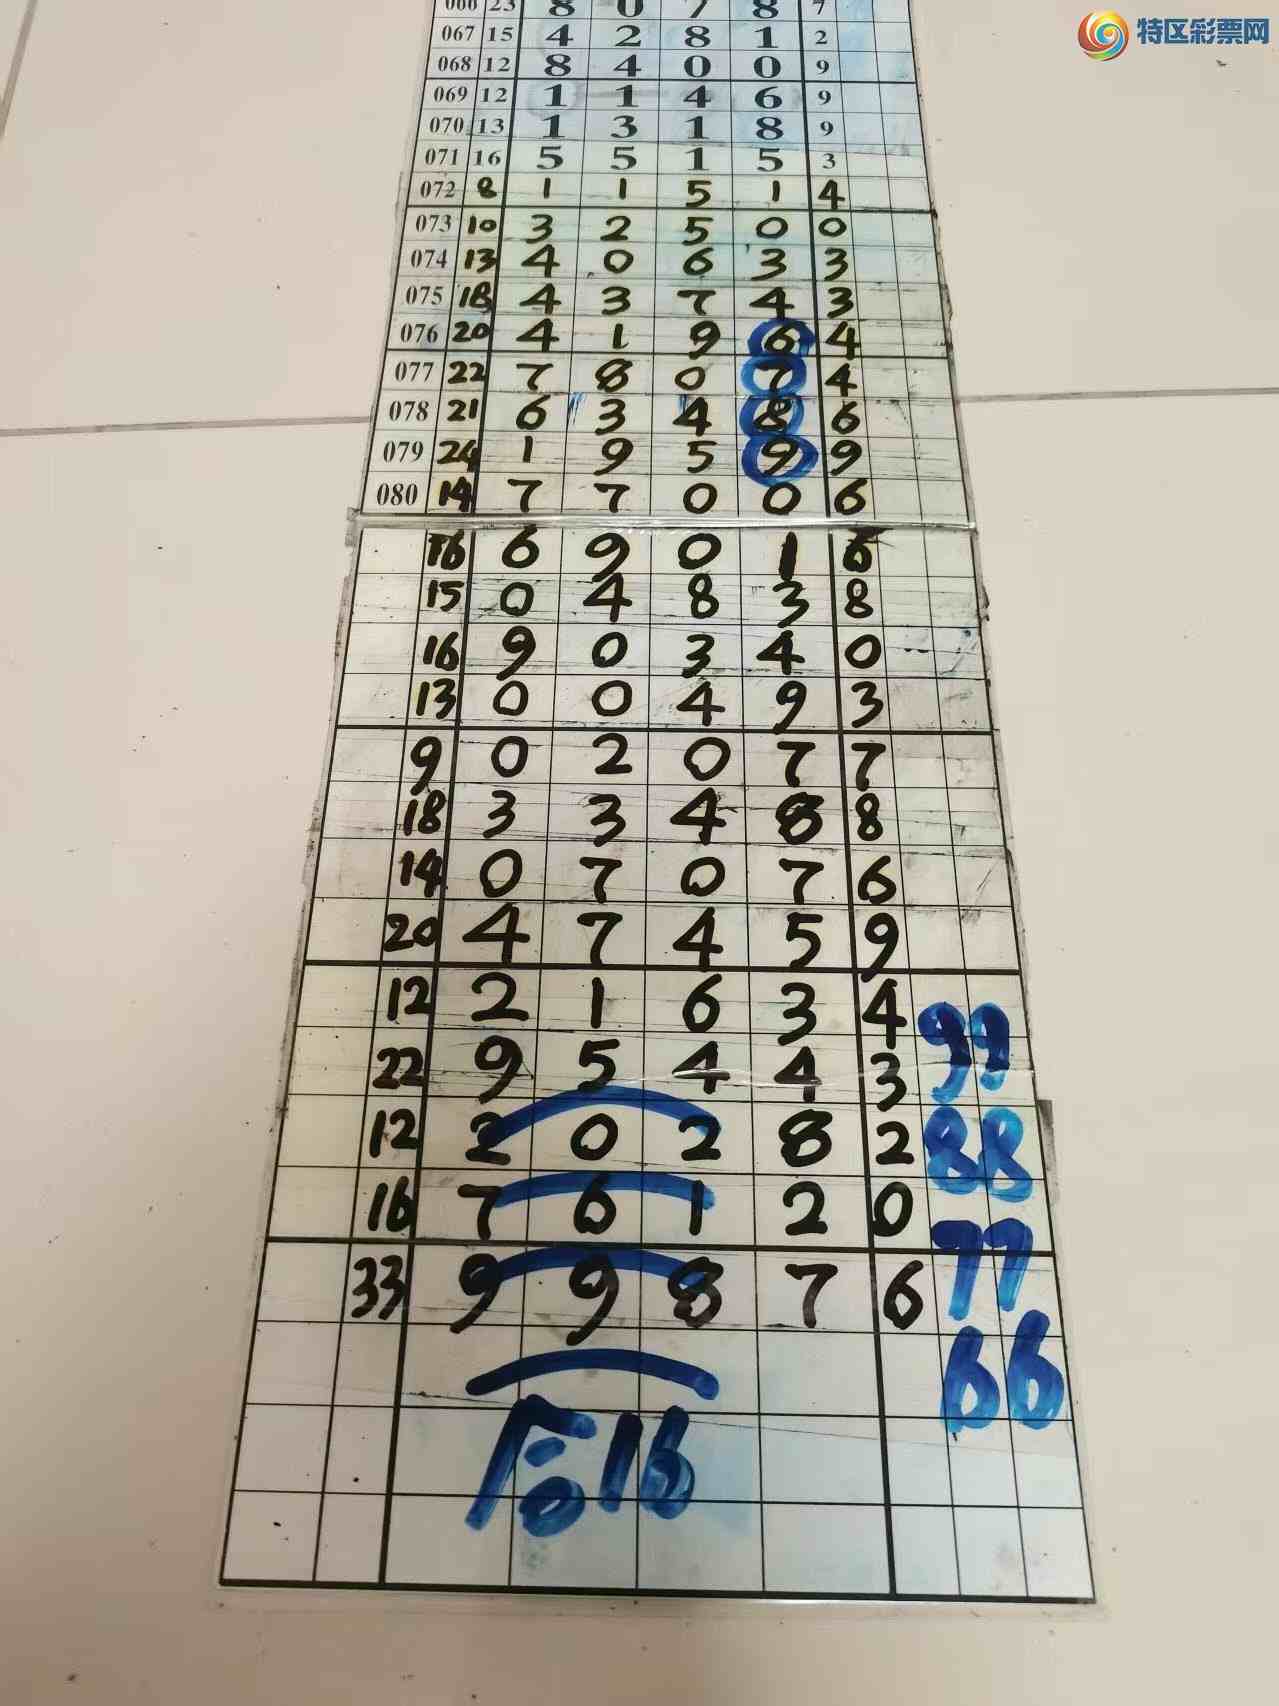 特区彩票网
066 23 8 0 7 8 7
067 15 4 2 8 1 2
068 12 8 4 0 0 9
069 12 1 1 4 6 9
070 13 1 3 1 8 9
071 16 5 5 1 5 3
072 8 1 1 5 1 4
073 10 3 2 5 0 0
074 13 4 0 6 3 3
075 18 4 3 7 4 3
076 20 4 1 9 6 4
077 22 7 8 0 7 4
078 21 6 3 4 8 6
079 24 1 9 5 9 9
080 14 7 7 0 0 6
16 6 9 0 1 6
15 0 4 8 3 8
16 9 0 3 4 0
13 0 0 4 9 3
9 0 2 0 7 7
18 3 3 4 8 8
14 0 7 0 7 6
20 4 7 4 5 9
12 2 1 6 3 4
22 9 5 4 4 3
99
12 2 0 2 8 2
88
16 7 6 1 2 0
77
33 9 9 8 7 6
66
后16